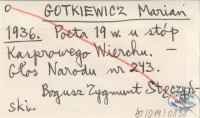 o GOTKIEWICZ Marian
1936. Poeta 19 w. u stóp
Kasprowego Wierchu. –
Głos Narodu nr 243.
Bogusz Zygmunt Stęczyń-
ski.